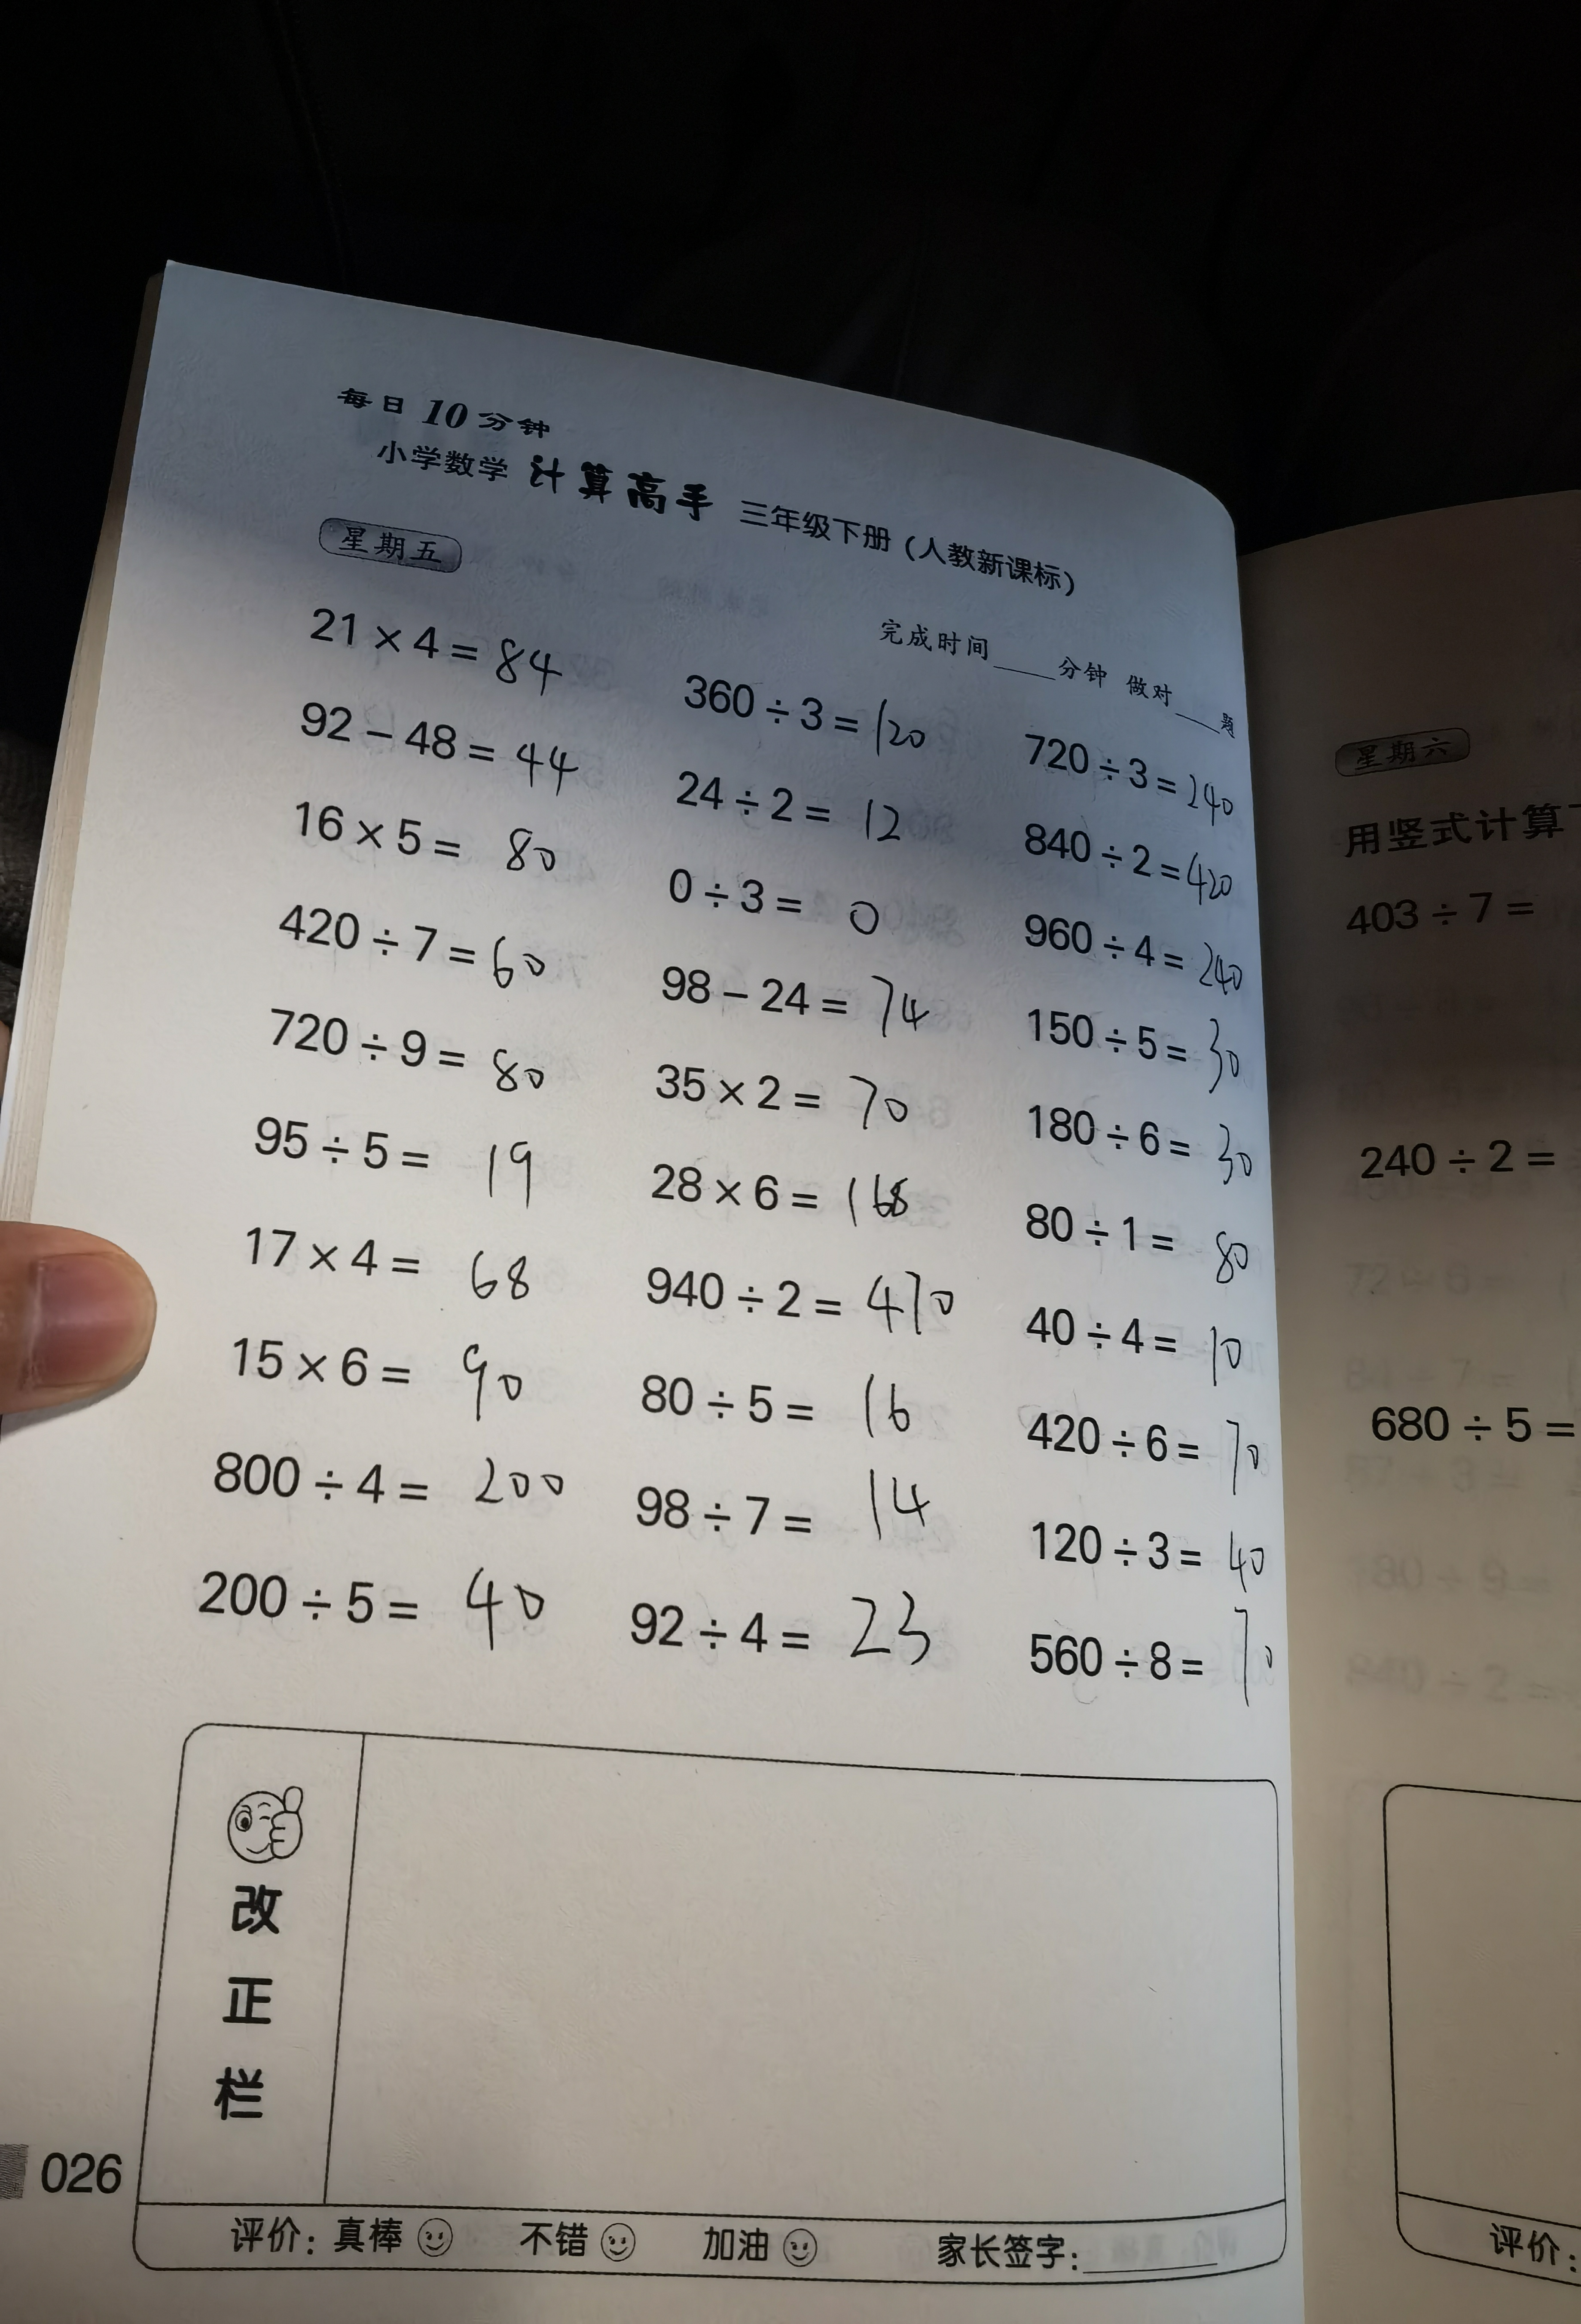 每日10分钟
小学数学 计算高手 三年级下册(人教新课标)
星期五
完成时间____分钟 做对___题
21×4=84
92-48=44
16×5=80
420÷7=60
720÷9=80
95÷5=19
17×4=68
15×6=90
800÷4=200
200÷5=40
360÷3=120
24÷2=12
0÷3=0
98-24=74
35×2=70
28×6=168
940÷2=470
80÷5=16
98÷7=14
92÷4=23
720÷3=240
840÷2=420
960÷4=240
150÷5=30
180÷6=30
80÷1=80
40÷4=10
420÷6=70
120÷3=40
560÷8=70
改正栏
评价:真棒 不错 加油 家长签字:______
026
星期六
用竖式计算
403÷7=
240÷2=
680÷5=
评价: